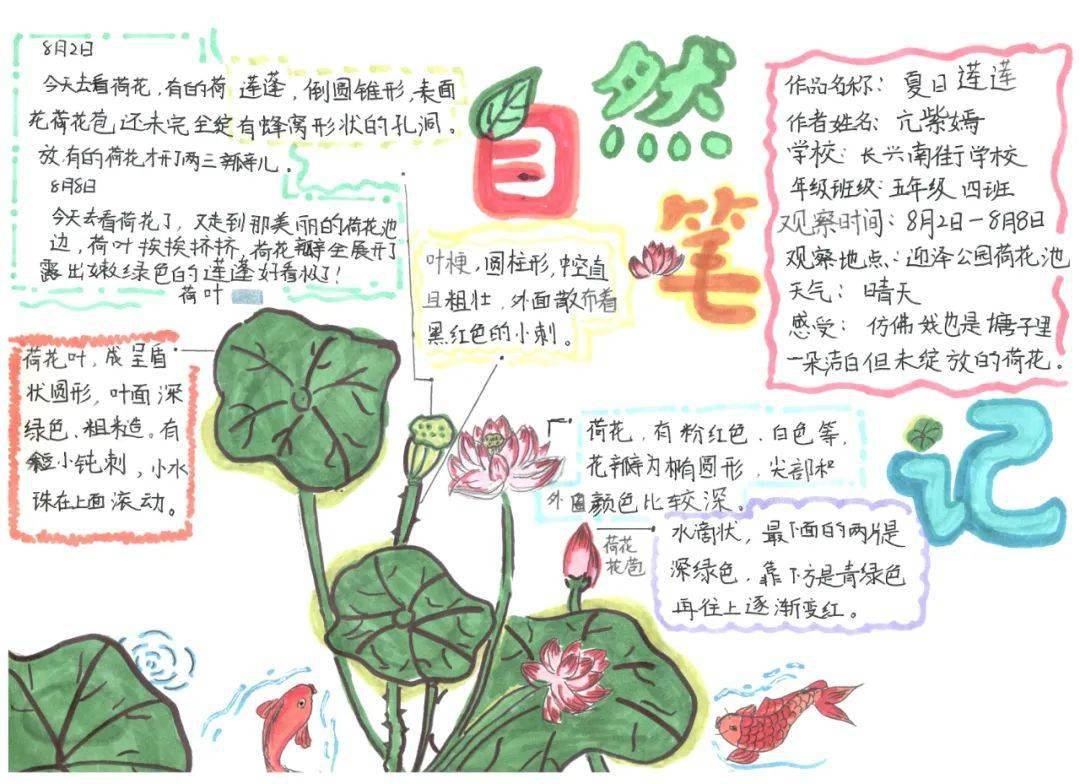 自然笔记
8月2日
今天去看荷花，有的荷
花荷花苞还未完全绽
放，有的荷花才开了两三瓣儿。
莲蓬，倒圆锥形，表面
有蜂窝形状的孔洞。
8月8日
今天去看荷花了，又走到那美丽的荷花池
边，荷叶挨挨挤挤，荷花瓣全展开了
露出嫩绿色的莲蓬好看极了！
荷叶
荷花叶，成呈盾
状圆形，叶面深
绿色、粗糙。有
短小钝刺，小水
珠在上面滚动。
叶梗，圆柱形，中空直
且粗壮，外面散布着
黑红色的小刺。
荷花，有粉红色、白色等，
花瓣为椭圆形，尖部和
外围颜色比较深。
荷花
花苞
水滴状，最下面的两片是
深绿色，靠下方是青绿色
再往上逐渐变红。
作品名称：夏日莲莲
作者姓名：亢紫嫣
学校：长兴南街学校
年级班级：五年级 四班
观察时间：8月2日-8月8日
观察地点：迎泽公园荷花池
天气：晴天
感受：仿佛我也是塘子里
一朵洁白但未绽放的荷花。